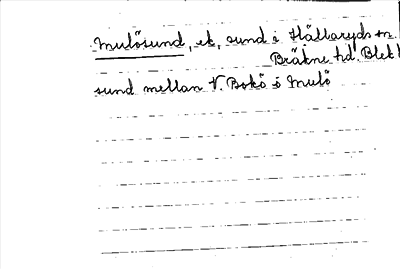 Mulösund, ek, sund i Hällaryds sn.
Bräkne hd. Blek
sund mellan V. Bokö o Mulö